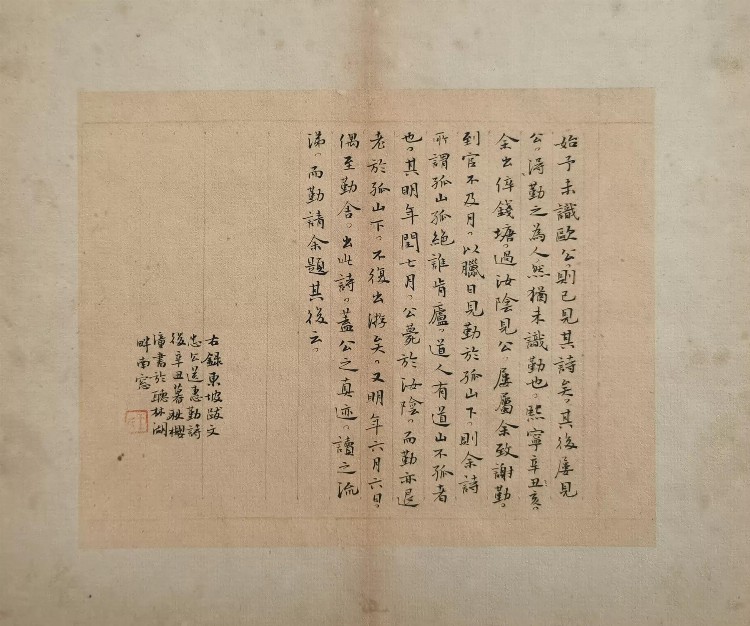 始予未識歐公。則已見其詩矣。其後屢見
公。得勤之為人然猶未識勤也。熙寧辛丑亥。
余出倅錢塘。過汝陰見公。屢屬余致謝勤。
到官不及月。以臘日見勤於孤山下。則余詩
所謂孤山孤絕誰肯廬。道人有道山不孤者
也。其明年閏七月。公薨於汝陰。而勤亦退
老於孤山下。不復出游矣。又明年六月六日。
偶至勤舍。出此詩。蓋公之真迹。讀之流
涕。而勤請余題其後云。
右錄東坡跋文
忠公送惠勤詩
後辛丑暮秋櫻
漳書於聽林湖
畔南窓